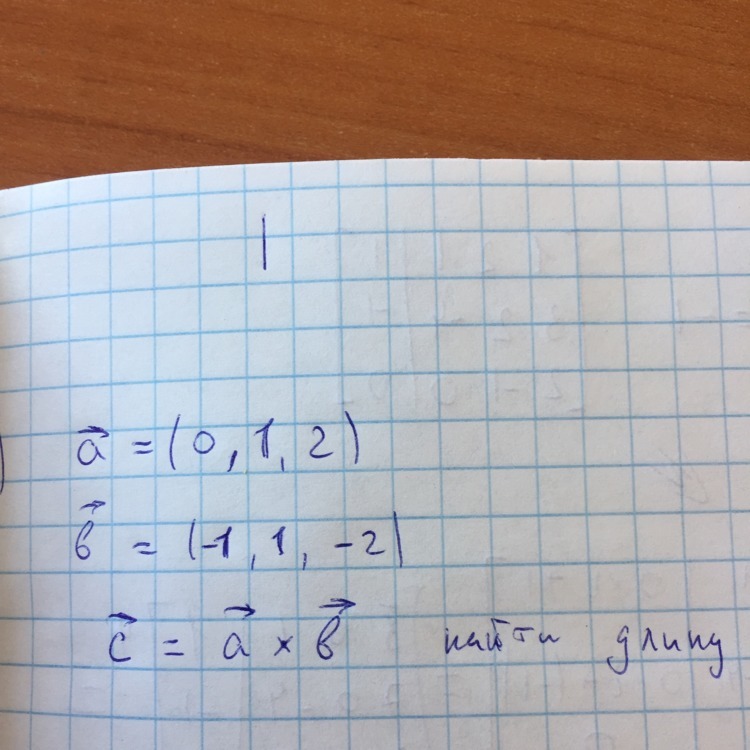 |
) a⃗ = (0, 1, 2)
в⃗ = (-1, 1, -2)
c⃗ = a⃗ × в⃗ найти длину